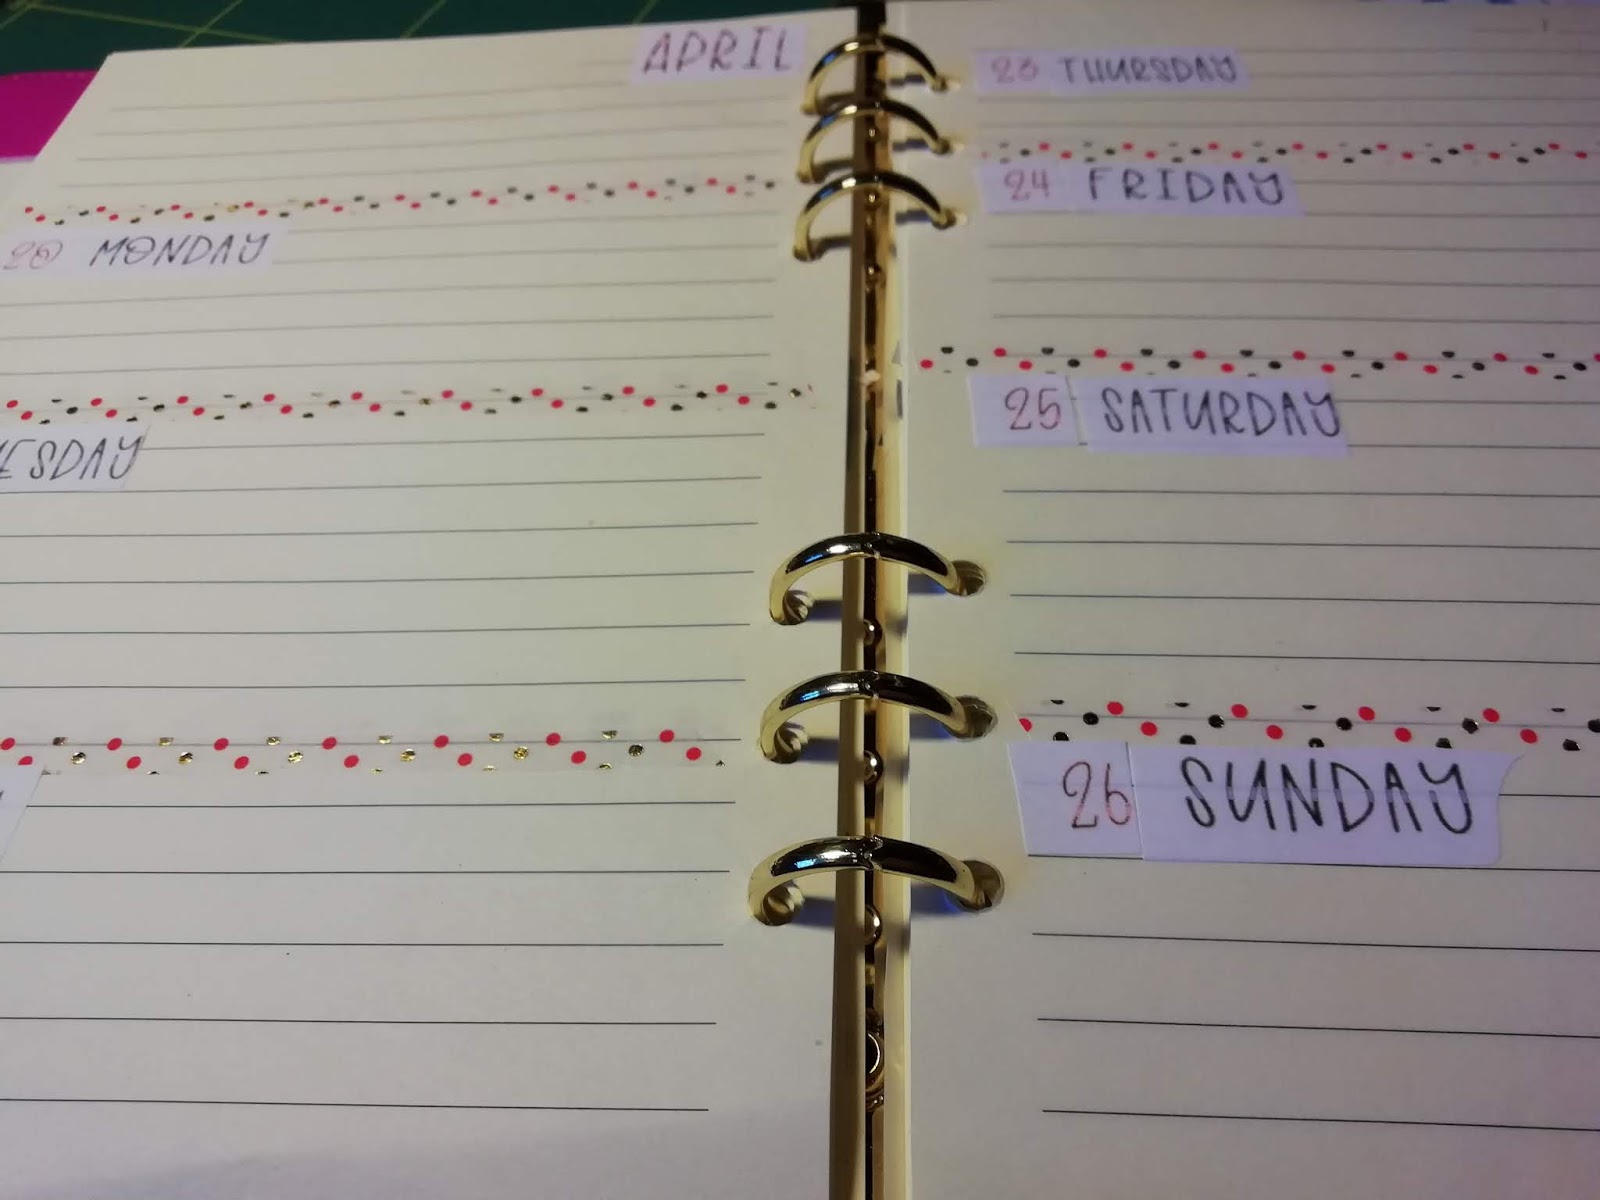 APRIL
20 MONDAY
ESDAY
23 THURSDAY
24 FRIDAY
25 SATURDAY
26 SUNDAY